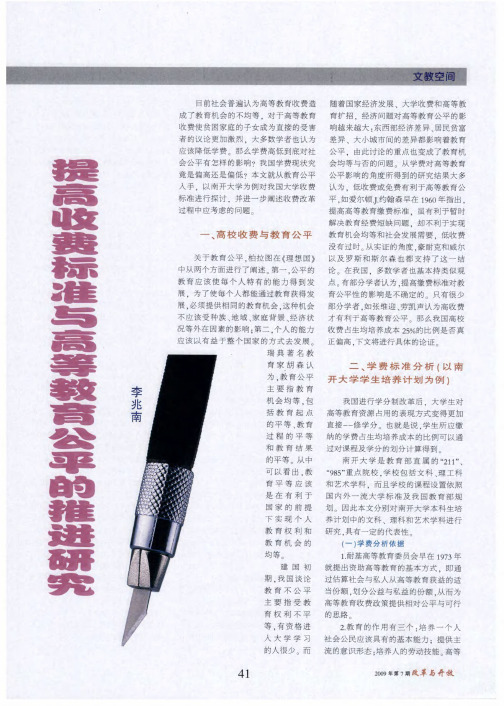 文教空间
提高收费标准与高等教育公平的推进研究
李兆南
目前社会普遍认为高等教育收费造
成了教育机会的不均等，对于高等教育
收费使贫困家庭的子女成为直接的受害
者的议论更加激烈，大多数学者也认为
应该降低学费。那么学费高低到底对社
会公平有怎样的影响？我国学费现状究
竟是偏高还是偏低？本文就从教育公平
入手，以南开大学为例对我国大学收费
标准进行探讨，并进一步阐述收费改革
过程中应考虑的问题。
一、高校收费与教育公平
关于教育公平，柏拉图在《理想国》
中从两个方面进行了阐述，第一，公平的
教育应该使每个人特有的能力得到发
展，为了使每个人都能通过教育获得发
展，必须提供相同的教育机会，这种机会
不应该受种族、地域、家庭背景、经济状
况等外在因素的影响；第二，个人的能力
应该以有益于整个国家的方式去发展。
瑞典著名教
育家胡森认
为，教育公平
主要指教育
机会均等，包
括教育起点
的平等，教育
过程的平等
和教育结果
的平等。从中
可以看出，教
育平等应该
是在有利于
国家的前提
下实现个人
教育权利和
教育机会的
均等。
建国初
期，我国谈论
教育不公平
主要指受教
育权利不平
等，有资格进
入大学学习
的人很少。而
随着国家经济发展，大学收费和高等教
育扩招，经济问题对高等教育公平的影
响越来越大；东西部经济差异、居民贫富
差异、大小城市间的差异都影响着教育
公平，由此讨论的重点也变成了教育机
会均等与否的问题。从学费对高等教育
公平影响的角度所得到的研究结果大多
认为，低收费或免费有利于高等教育公
平，如爱尔顿J.约翰森早在1960年指出，
提高高等教育缴费标准，虽有利于暂时
解决教育经费短缺问题，却不利于实现
教育机会均等和社会发展需要，低收费
没有过时。从实证的角度，豪耐克和威尔
以及罗斯和斯尔森也都支持了这一结
论。在我国，多数学者也基本持类似观
点。有部分学者认为，提高缴费标准对教
育公平性的影响是不确定的。只有很少
部分学者，如张维迎、劳凯声认为高收费
才有利于高等教育公平。那么我国高校
收费占生均培养成本25%的比例是否真
正偏高，下文将进行具体的论证。
二、学费标准分析（以南
开大学学生培养计划为例）
我国进行学分制改革后，大学生对
高等教育资源占用的表现方式变得更加
直接－－修学分。也就是说，学生所应缴
纳的学费占生均培养成本的比例可以通
过对课程及学分的划分计算得到。
南开大学是教育部直属的“211”、
“985”重点院校，学校包括文科、理工科
和艺术学科，而且学校的课程设置依照
国内外一流大学标准及我国教育部规
划。因此本文分别对南开大学本科生培
养计划中的文科、理科和艺术学科进行
研究，具有一定的代表性。
（一）学费分析依据
1.耐基高等教育委员会早在1973年
就提出资助高等教育的基本方式，即通
过估算社会与私人从高等教育获益的适
当份额，划分公益与私益的份额，从而为
高等教育收费政策提供相对公平与可行
的思路。
2.教育的作用有三个：培养一个人
社会公民应该具有的基本能力；提供主
流的意识形态；培养人的劳动技能。高等
41
2009年第7期改革与开放